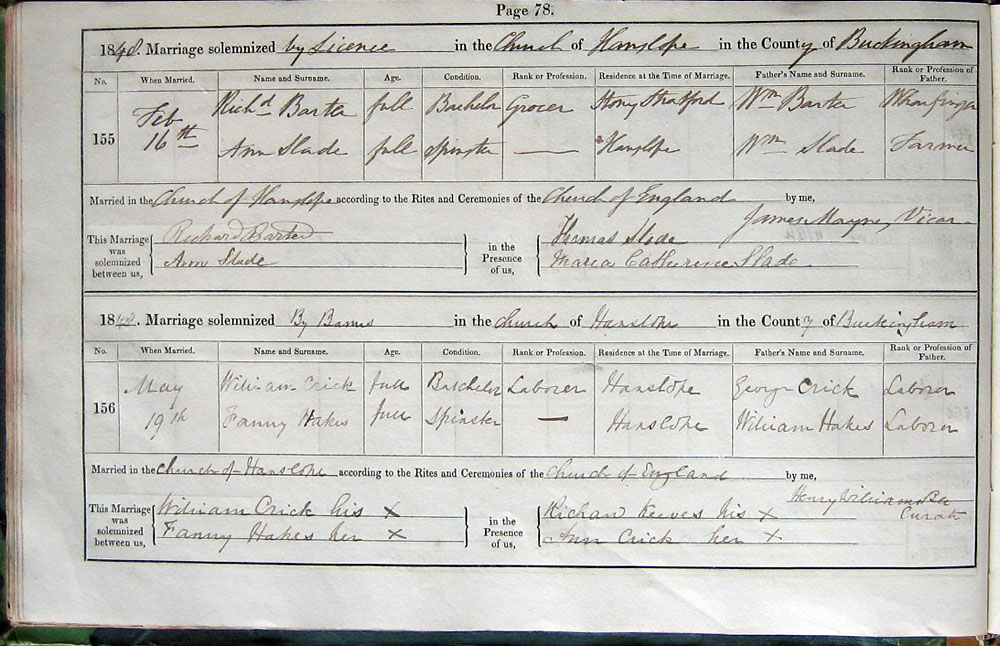 Page 78.
1848. Marriage solemnized by Licence in the Church of Hanslope in the County of Buckingham
No. When Married. Name and Surname. Age. Condition. Rank or Profession. Residence at the Time of Marriage. Father's Name and Surname. Rank or Profession of Father.
155 Feb 16th Richd Barter full Bachelor Grocer Stony Stratford Wm Barter Wharfinger
Ann Slade full Spinster — Hanslope Wm Slade Farmer
Married in the Church of Hanslope according to the Rites and Ceremonies of the Church of England by me,
James Mayne, Vicar
This Marriage was solemnized between us, Richard Barter Ann Slade in the Presence of us, Thomas Slade Maria Catherine Slade
1848. Marriage solemnized By Banns in the Church of Hanslope in the County of Buckingham
No. When Married. Name and Surname. Age. Condition. Rank or Profession. Residence at the Time of Marriage. Father's Name and Surname. Rank or Profession of Father.
156 May 19th William Crick full Batchelor Laborer Hanslope George Crick Laborer
Fanny Hakes full Spinster — Hanslope William Hakes Laborer
Married in the Church of Hanslope according to the Rites and Ceremonies of the Church of England by me,
Henry William
Curate
This Marriage was solemnized between us, William Crick his X Fanny Hakes her X in the Presence of us, Richard Reeves his X Ann Crick her X